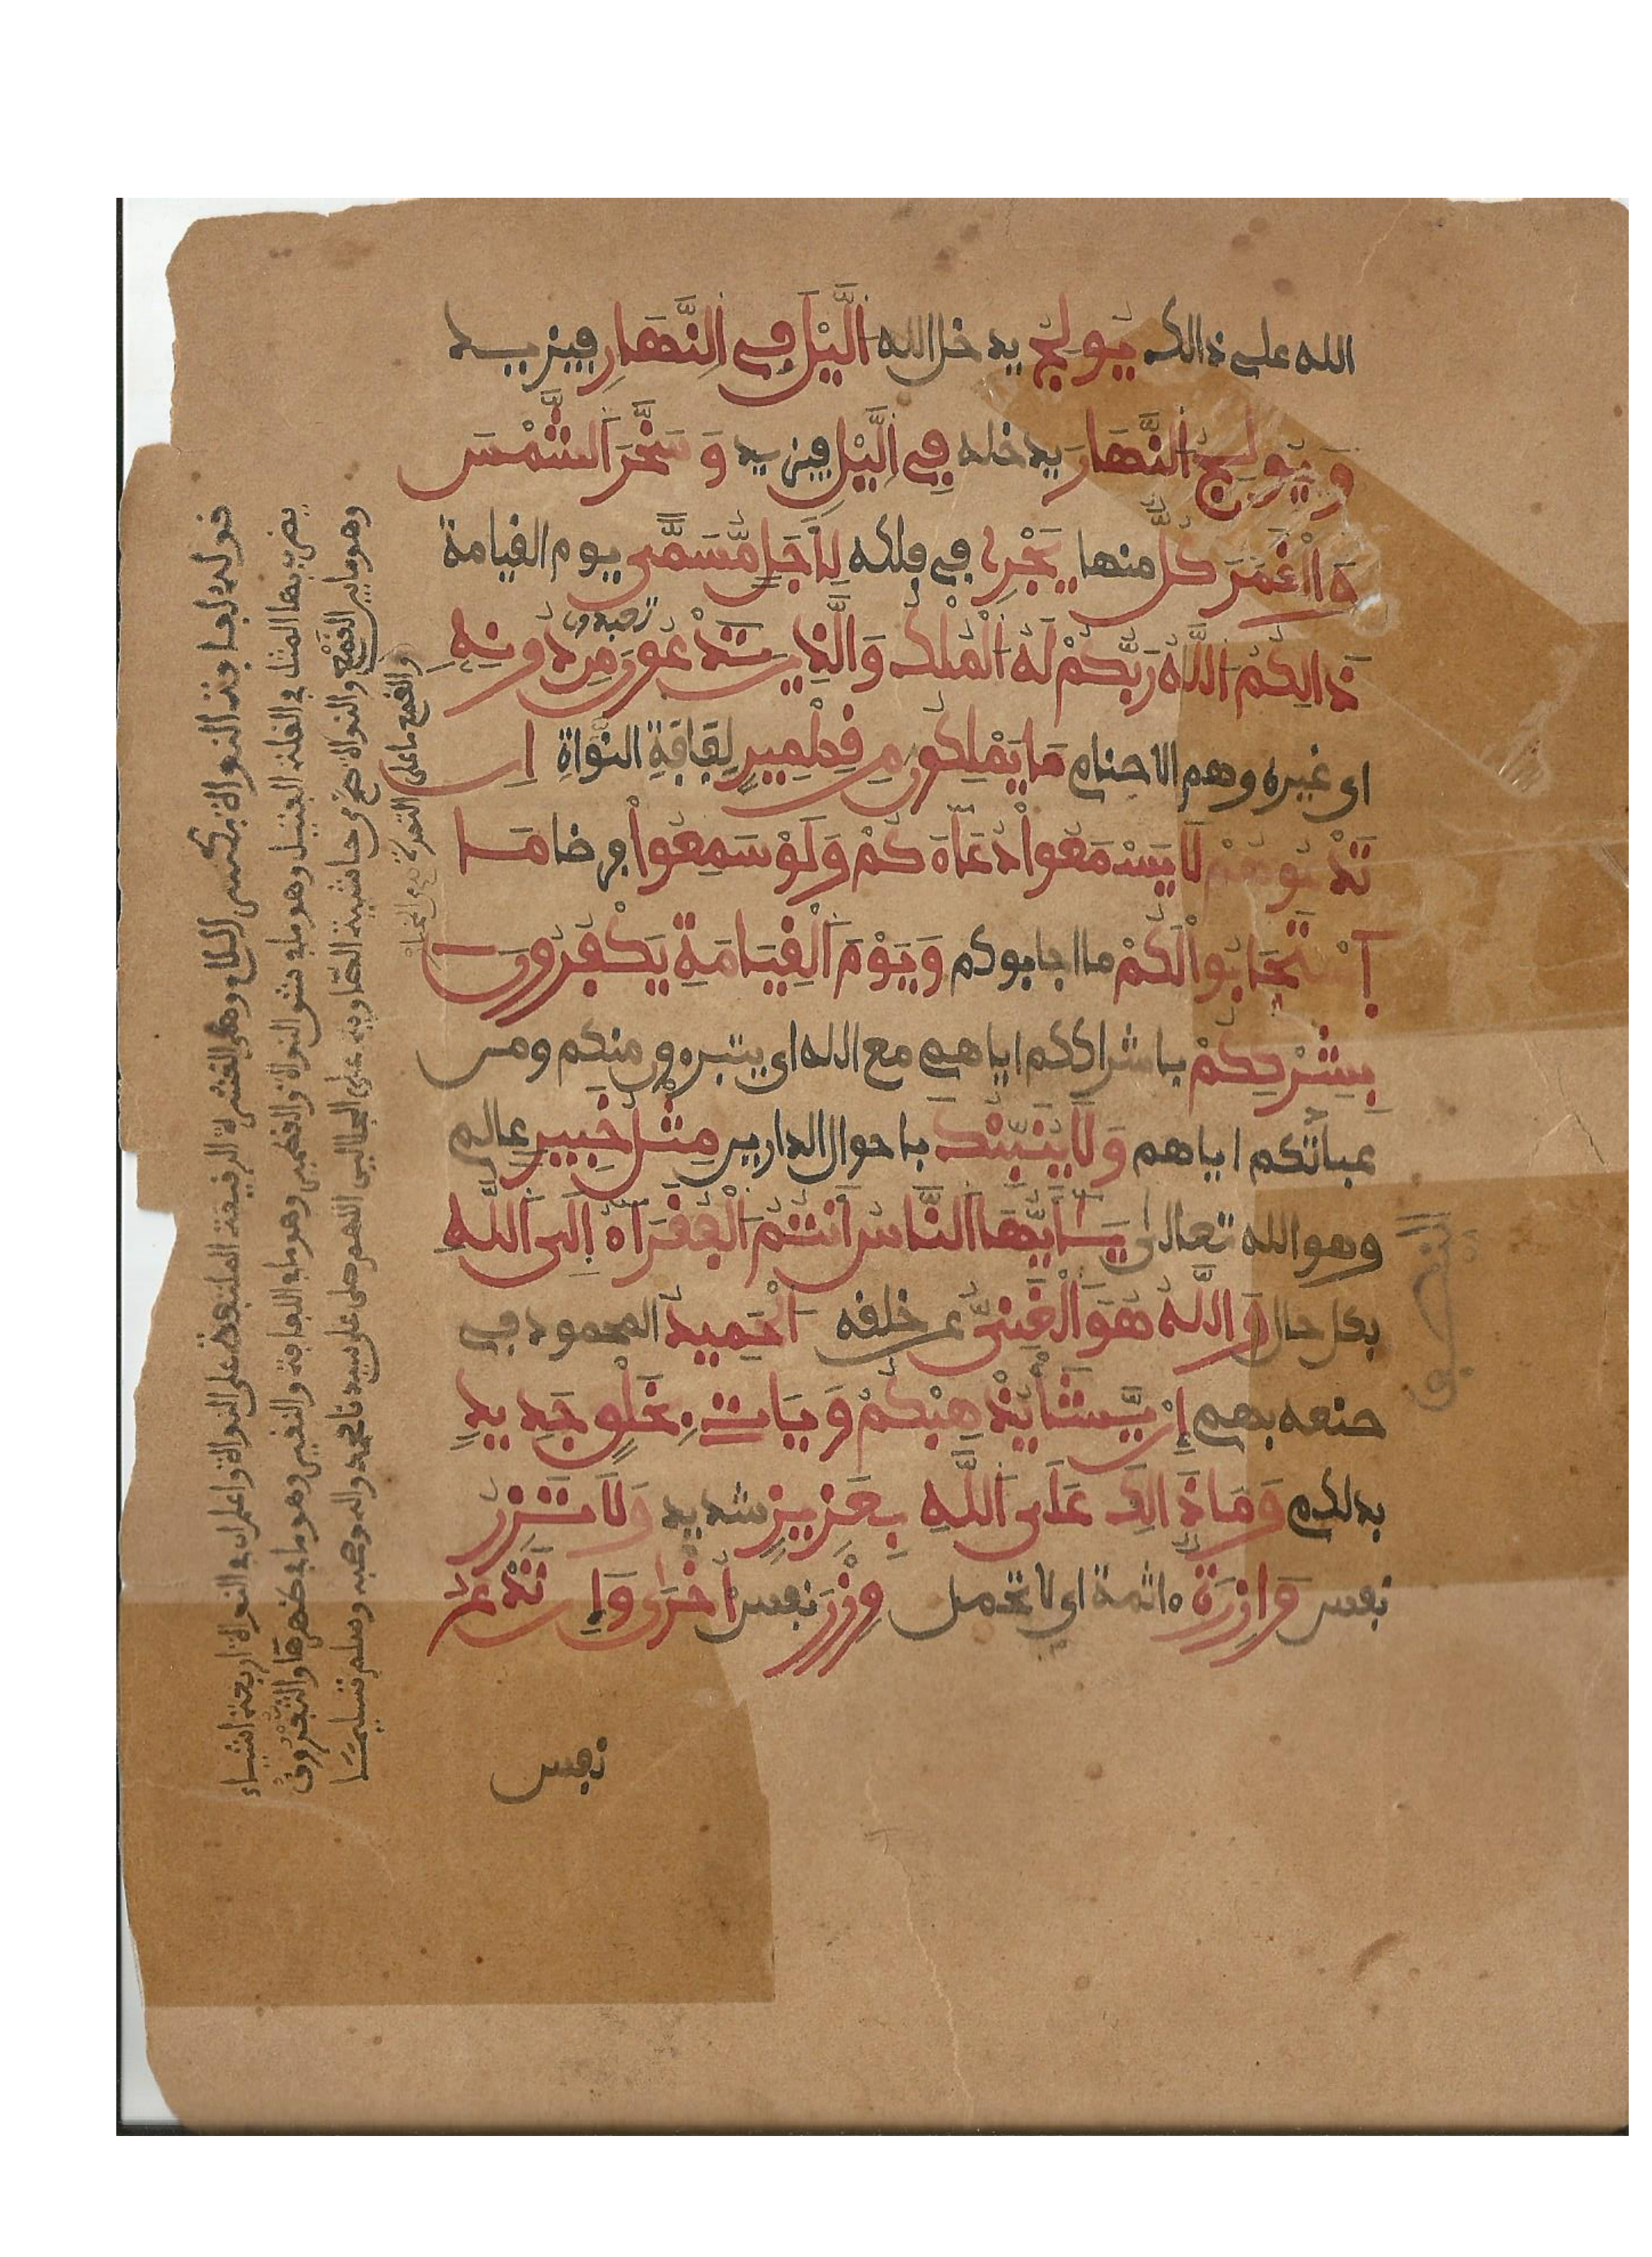 الله على ذالك يُولِجُ يدخل الله اَلَّيْلَ فِے اِلنَّهَارِ فيزيد
وَيُولِجُ اَلنَّهَارَ يدخله فِے اِلَّيْلِ فيزيد وَسَخَّرَ اَلشَّمْسَ
وَالْقَمَرَ كُلٌّ منها يَجْرِے في فلكه لِأَجَلٍ مُّسَمًّى يوم القيامة
ذَالِكُمُ اُللَّهُ رَبُّكُمْ لَهُ اُلْمُلْكُ وَالَّذِينَ تَدْعُونَ تعبدون مِن دُونِهِ
اى غيره وهم الاصنام مَا يَمْلِكُونَ مِن قِطْمِيرٍ لِفَافَةِ النَّوَاةِ إِن
تَدْعُوهُمْ لَا يَسْمَعُواْ دُعَآءَكُمْ وَلَوْ سَمِعُواْ فرضا مَا
اَسْتَجَابُواْ لَكُمْ ما اجابوكم وَيَوْمَ اَلْقِيَامَةِ يَكْفُرُونَ
بِشِرْكِكُمْ باشراككم اياهم مع الله اى يتبرءون منكم ومن
عبادتكم اياهم وَلَا يُنَبِّئُكَ باحوال الدارين مِثْلُ خَبِيرٍ عالم
وهو الله تعالى يَـأَيُّهَا اَلنَّاسُ أَنتُمُ اُلْفُقَرَآءُ إِلَى اَللَّهِ
بكل حال وَاللَّهُ هُوَ اَلْغَنِيُّ عن خلقه اُلْحَمِيدُ المحمود في
صنعه بهم إِنْ يَّشَأْ يُذْهِبْكُمْ وَيَاتِ بِخَلْقٍ جَدِيدٍ
بدلكم وَمَا ذَالِكَ عَلَى اَللَّهِ بِعَزِيزٍ شديد وَلَا تَزِرُ
نفس وَازِرَةٌ ءاثمة اى لا تحمل وِزْرَ نفس أُخْرَى وَإِن تَدْعُ
نفس
قوله لفافة النواة بكسر اللام وهي القشرة الرقيقة الملتفة على النواة واعلم ان في النواة اربعة اشياء
يضرب بها المثل في القلة الفتيل وهو ما في شق النواة والقطمير وهو ما في اللفافة والنقير وهو ما في ظهرها والثُّفْرُوق
وهو ما بين القمع والنواة صح من حاشية الصاوي على الجلالين اللهم صل على سيدنا محمد واله وصحبه وسلم تسليما
والقمع ما على التمرة
النصف